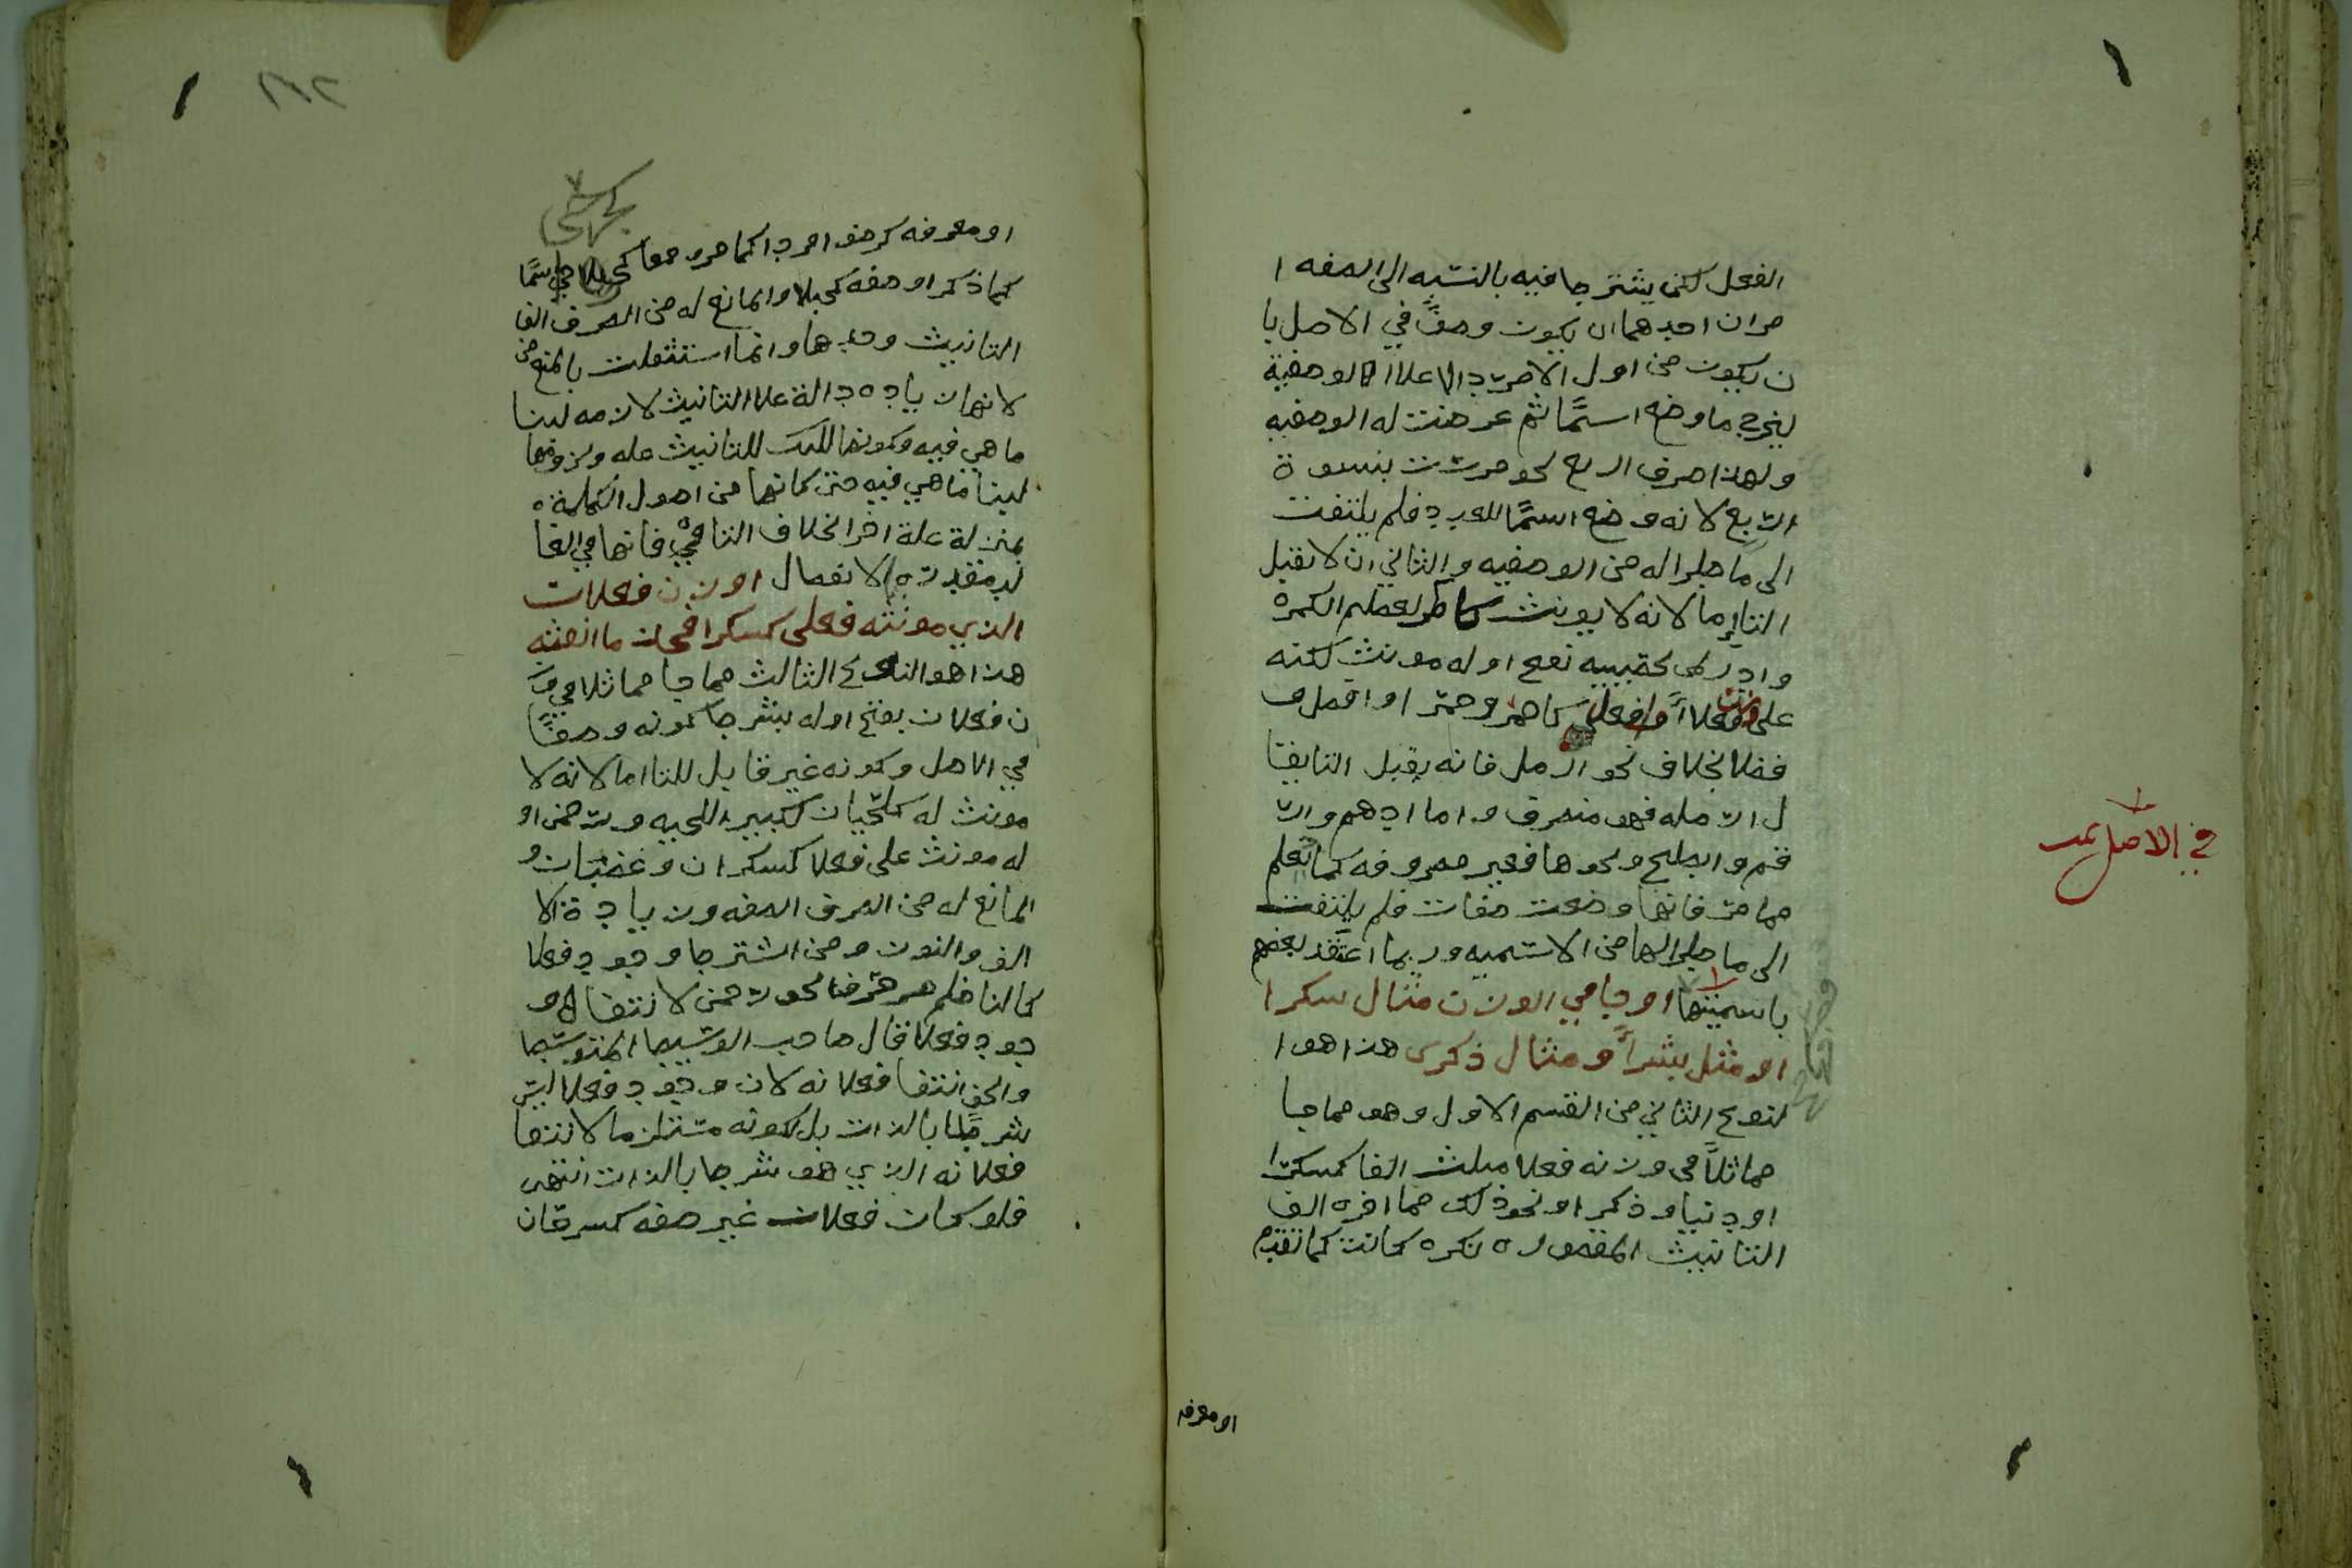 الفعل لكن يشترط فيه بالنسبه الى الصفه ا
مران احدهما ان يكون وصفًا في الاصل با
ن يكون من اول الامر دالا على الوصفية
ليخرج ما وضع اسمًا ثم عرضت له الوصفيه
ولهذا صرف اربع نحو مررت بنسوة
اربع لانه وضع اسمًا للعدد فلم يلتفت
الى ما طرا له من الوصفيه والثاني ان لا يقبل
التا اما لانه لا يونث كاكمر لعظيم الكمرة
وادر لمن بخصيتيه نفخ اوله مونث لكنه
على وزن فعلا او فعلى كاحمر وحمرا وافضل و
فضلا بخلاف نحو ارمل فانه يقبل التا يقا
ل ارمله فهو منصرف واما ادهم وار
قم وابطح ونحوها فغير مصروفه كما تعلم
مما مر فانها وضعت صفات فلم يلتفت
الى ما طرا لها من الاسميه وربما اعتقد بعضهم
باسميتها او جا في الوزن مثال سكرا
او مثل بشرا و مثال ذكرى هذا هو ا
لنوع الثاني من القسم الاول وهو مما جا
مماثلًا في وزنه فعلا مثلث الفا كسكرا
او دنيا و ذكر او نحو ذلك مما اخره الف
التانيث المقصوره نكره كانت كما تقدم
في الاصل
او معرفه
او معرفه كرضوا مفردا كما مر جمعا كجرحى اسمًا
كما ذكر او صفه كحبلا والمانع له من الصرف الف
التانيث وحدها وانما استقلت بالمنع
لانها زياده دالة على التانيث لازمه لبنا
ما هي فيه وكونها للتانيث عله ولزومها
لبنا ما هي فيه حتى كانها من اصول الكلمة
بمنزلة علة اخرا بخلاف التا فانها في الغا
لب مقدرة الانفصال او وزن فعلان
الذي مونثه فعلى كسكران ما انعته
هذا هو النوع الثالث مما جا مماثلا في وز
ن فعلان بفتح اوله بشرط كونه وصفًا
في الاصل وكونه غير قابل للتا اما لانه لا
مونث له كلحيان لكبير اللحيه ورحمن او
له مونث على فعلا كسكران وغضبان و
المانع له من الصرف الصفه وزيادة الا
لف والنون ومن اشترط وجود فعلا
كالناظم صرف نحو رحمن لانتفا و
جود فعلا قال صاحب الوشيط المتوسط
والحق انتفا فعلانه لان وجود فعلا ليس
شرطًا بالذات بل لكونه مستلزما لانتفا
فعلانه الذي هو شرط بالذات انتهى
فلو كان فعلان غير صفه كسرحان